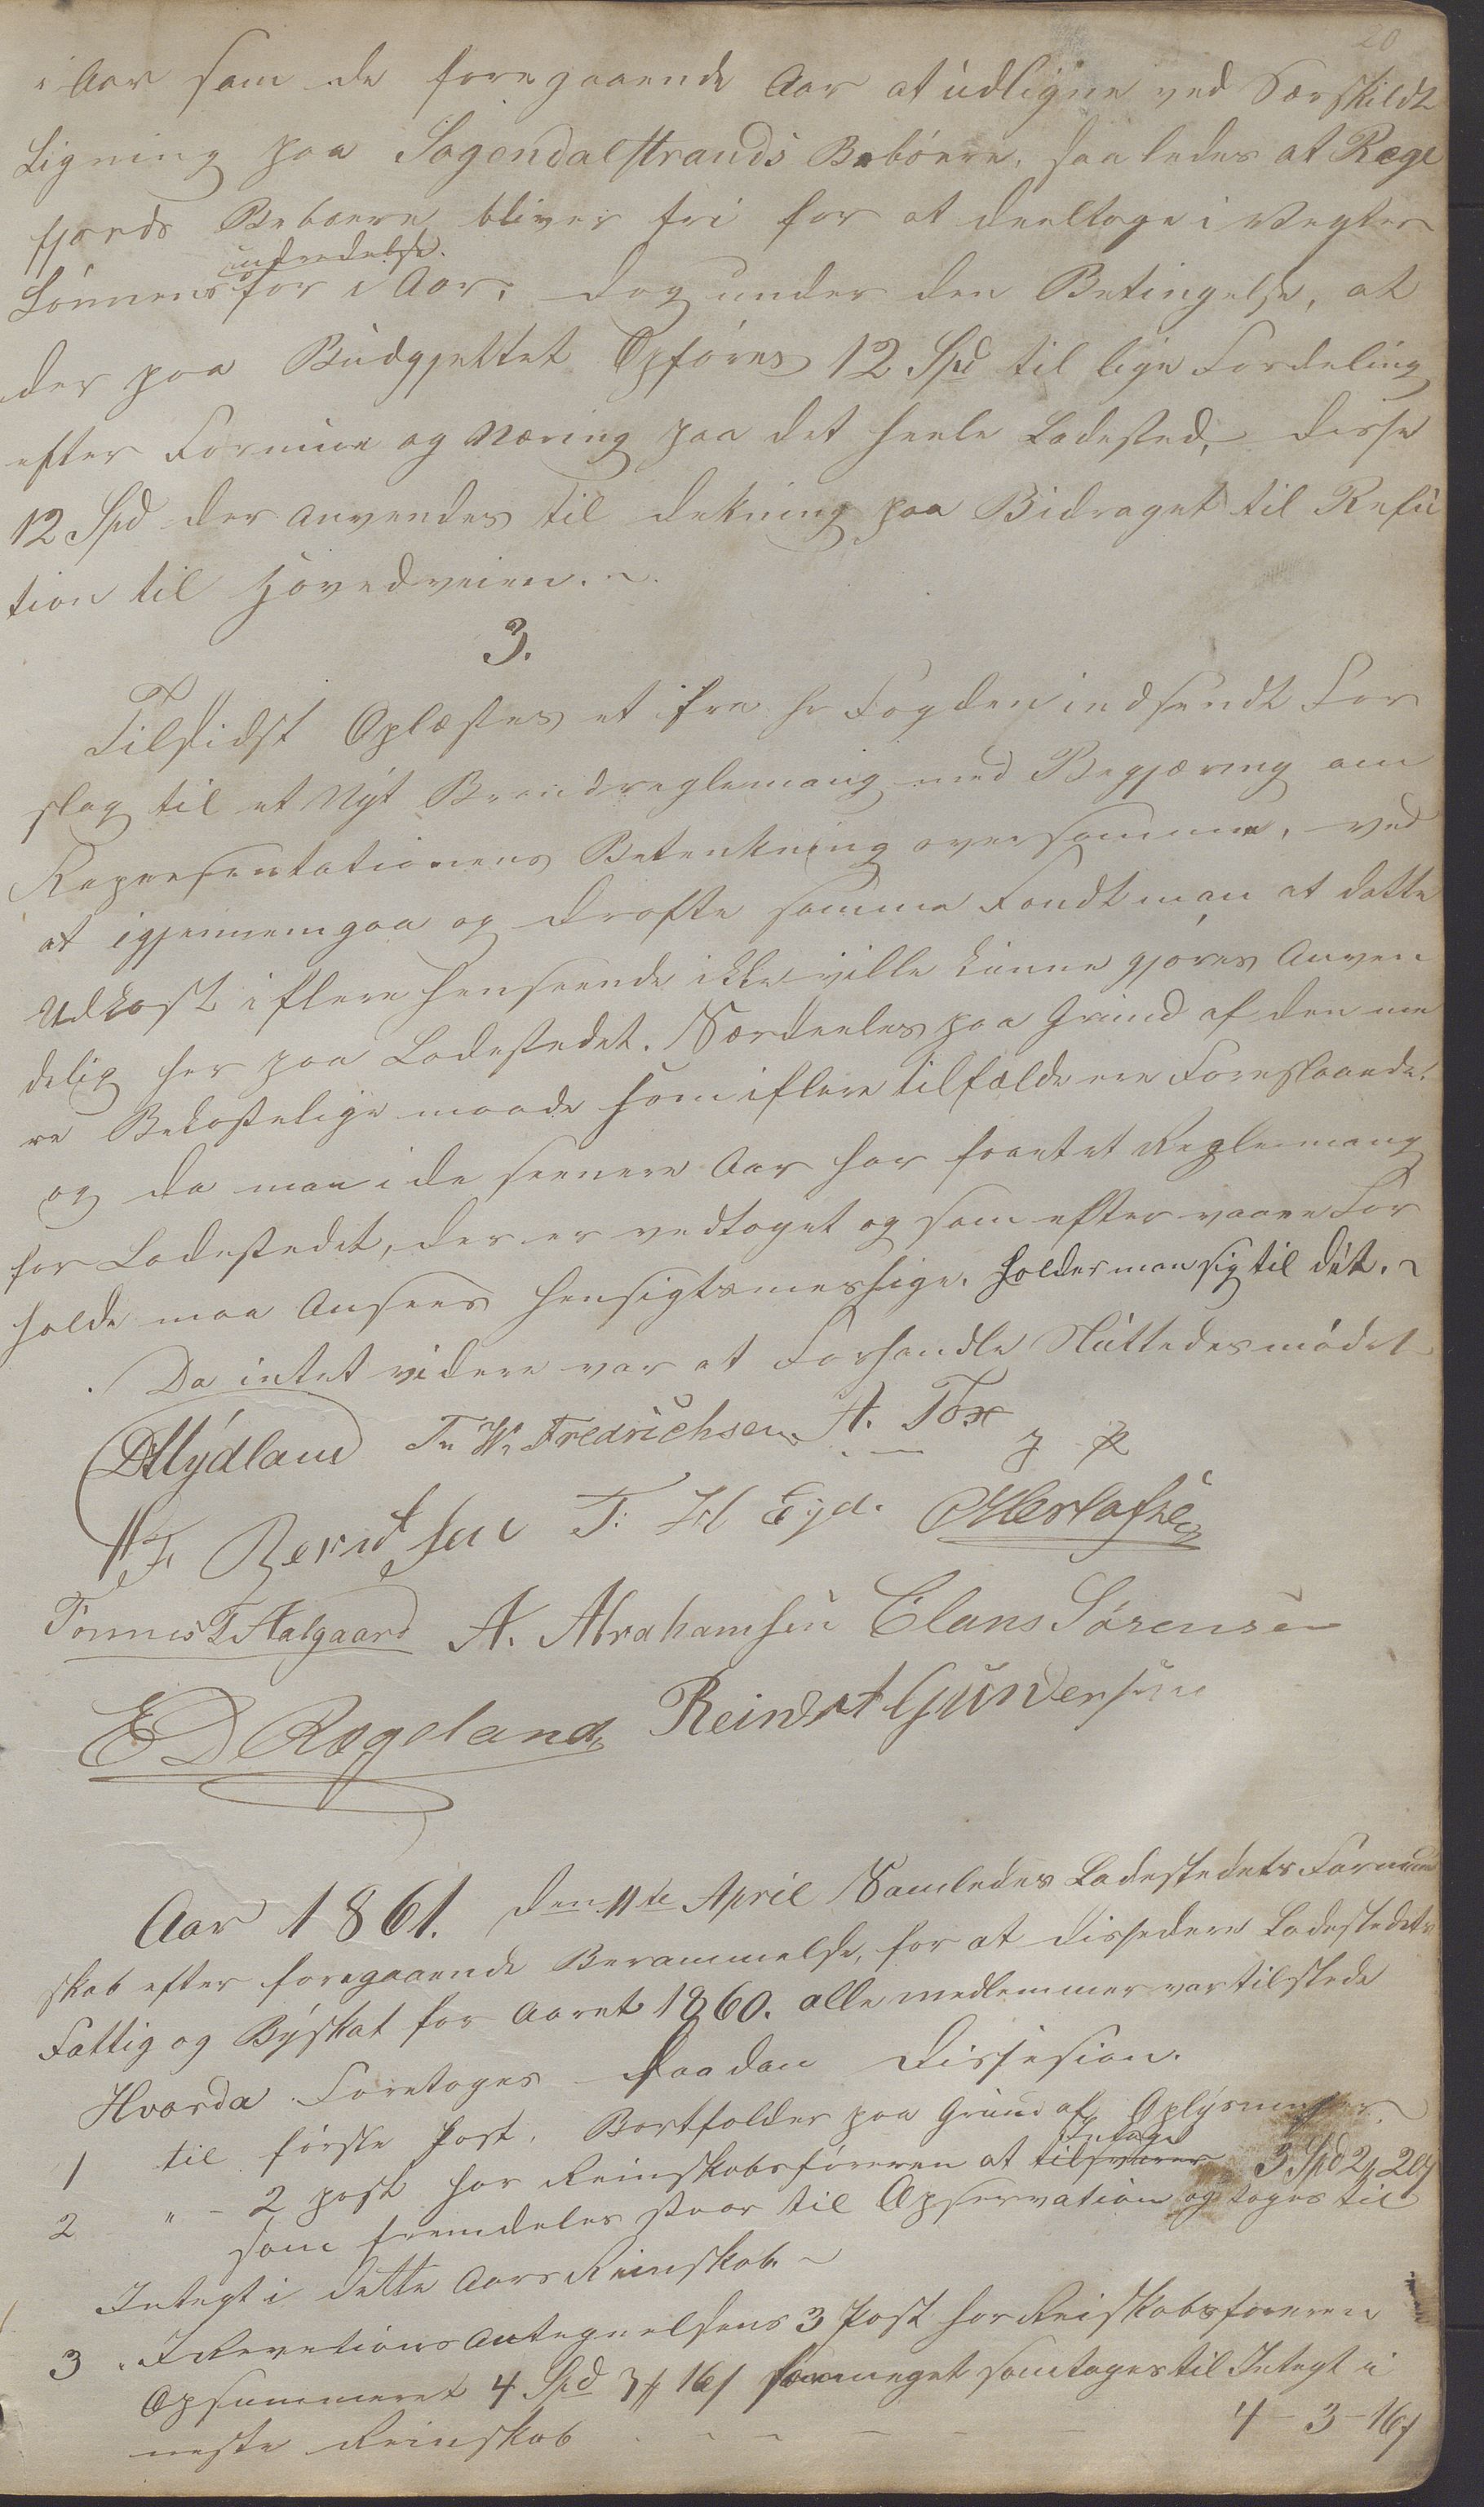 20
i Aar som de foregaaende Aar at udligne ved Særskildt
Ligning paa Sogendalstrands Beboere, saaledes at Rege
fjords Beboere bliver fri for at deeltage i Vegter
udredelse.
Lønnens for i Aar; dog under den Betingelse, at
der paa Budgjettet Opføres 12 Spd til lige Fordeling
efter Formue og Næring paa det heele Ladested, disse
12 Spd der anvendes til dekning paa Bidraget til Refu
tion til Hovedveien. ~
3.
Tilsidst Oplæstes et ifra Hr Fogden indsendt For
slag til et Nyt Brandreglemang med Begjæring om
Representationens Betenkning over samme, ved
at igjennemgaa og drøfte samme Fandt man at dette
Udkast i flere henseende ikke ville kunne gjøres Anven
delig her paa Ladestedet. Særdeeles paa Grund af den me
re Bekostelige maade som i flere tilfælde ere Foreslaaede.
og da man i de seenere Aar har faaet et Reglemang
for Ladestedet, der er vedtaget og som efter vaare For
holde maa Ansees hensigtsmessige. holder man sig til det. ~
Da intet videre var at Forhandle Sluttedes mødet
D Mydland T. W. Fredrichsen A. Tox
F. Berntsen T. H Eyde O Herlofsen
Tønnes T Aalgaard A. Abrahamsen Claus Sørensen
E D Rægeland Reindt Gundersen
Aar 1861. den 11te April Samledes Ladestedets Formand
skab efter foregaaende Berammelse, for at dissedere Ladestedets
Fattig og Byskat for Aaret 1860. alle medlemmer var tilstede
Hvorda Foretoges saadan Dissesion.
1 til første Post. Bortfalder paa Grund af Oplysninger.
Intage
2 " - 2 post har Reinskabsføreren at tilsvarer 3 Spd 2 20
som fremdeles staar til Opservation og tages til
Integt i dette Aars Reinskab. ~
3 . I Revetions Antegnelsens 3 Post har Reiskabsføreren
Opsummeret 4 Spd 3 16 saameget som tages til Integt i
neste Reinskab - - - - 4 - 3 - 16